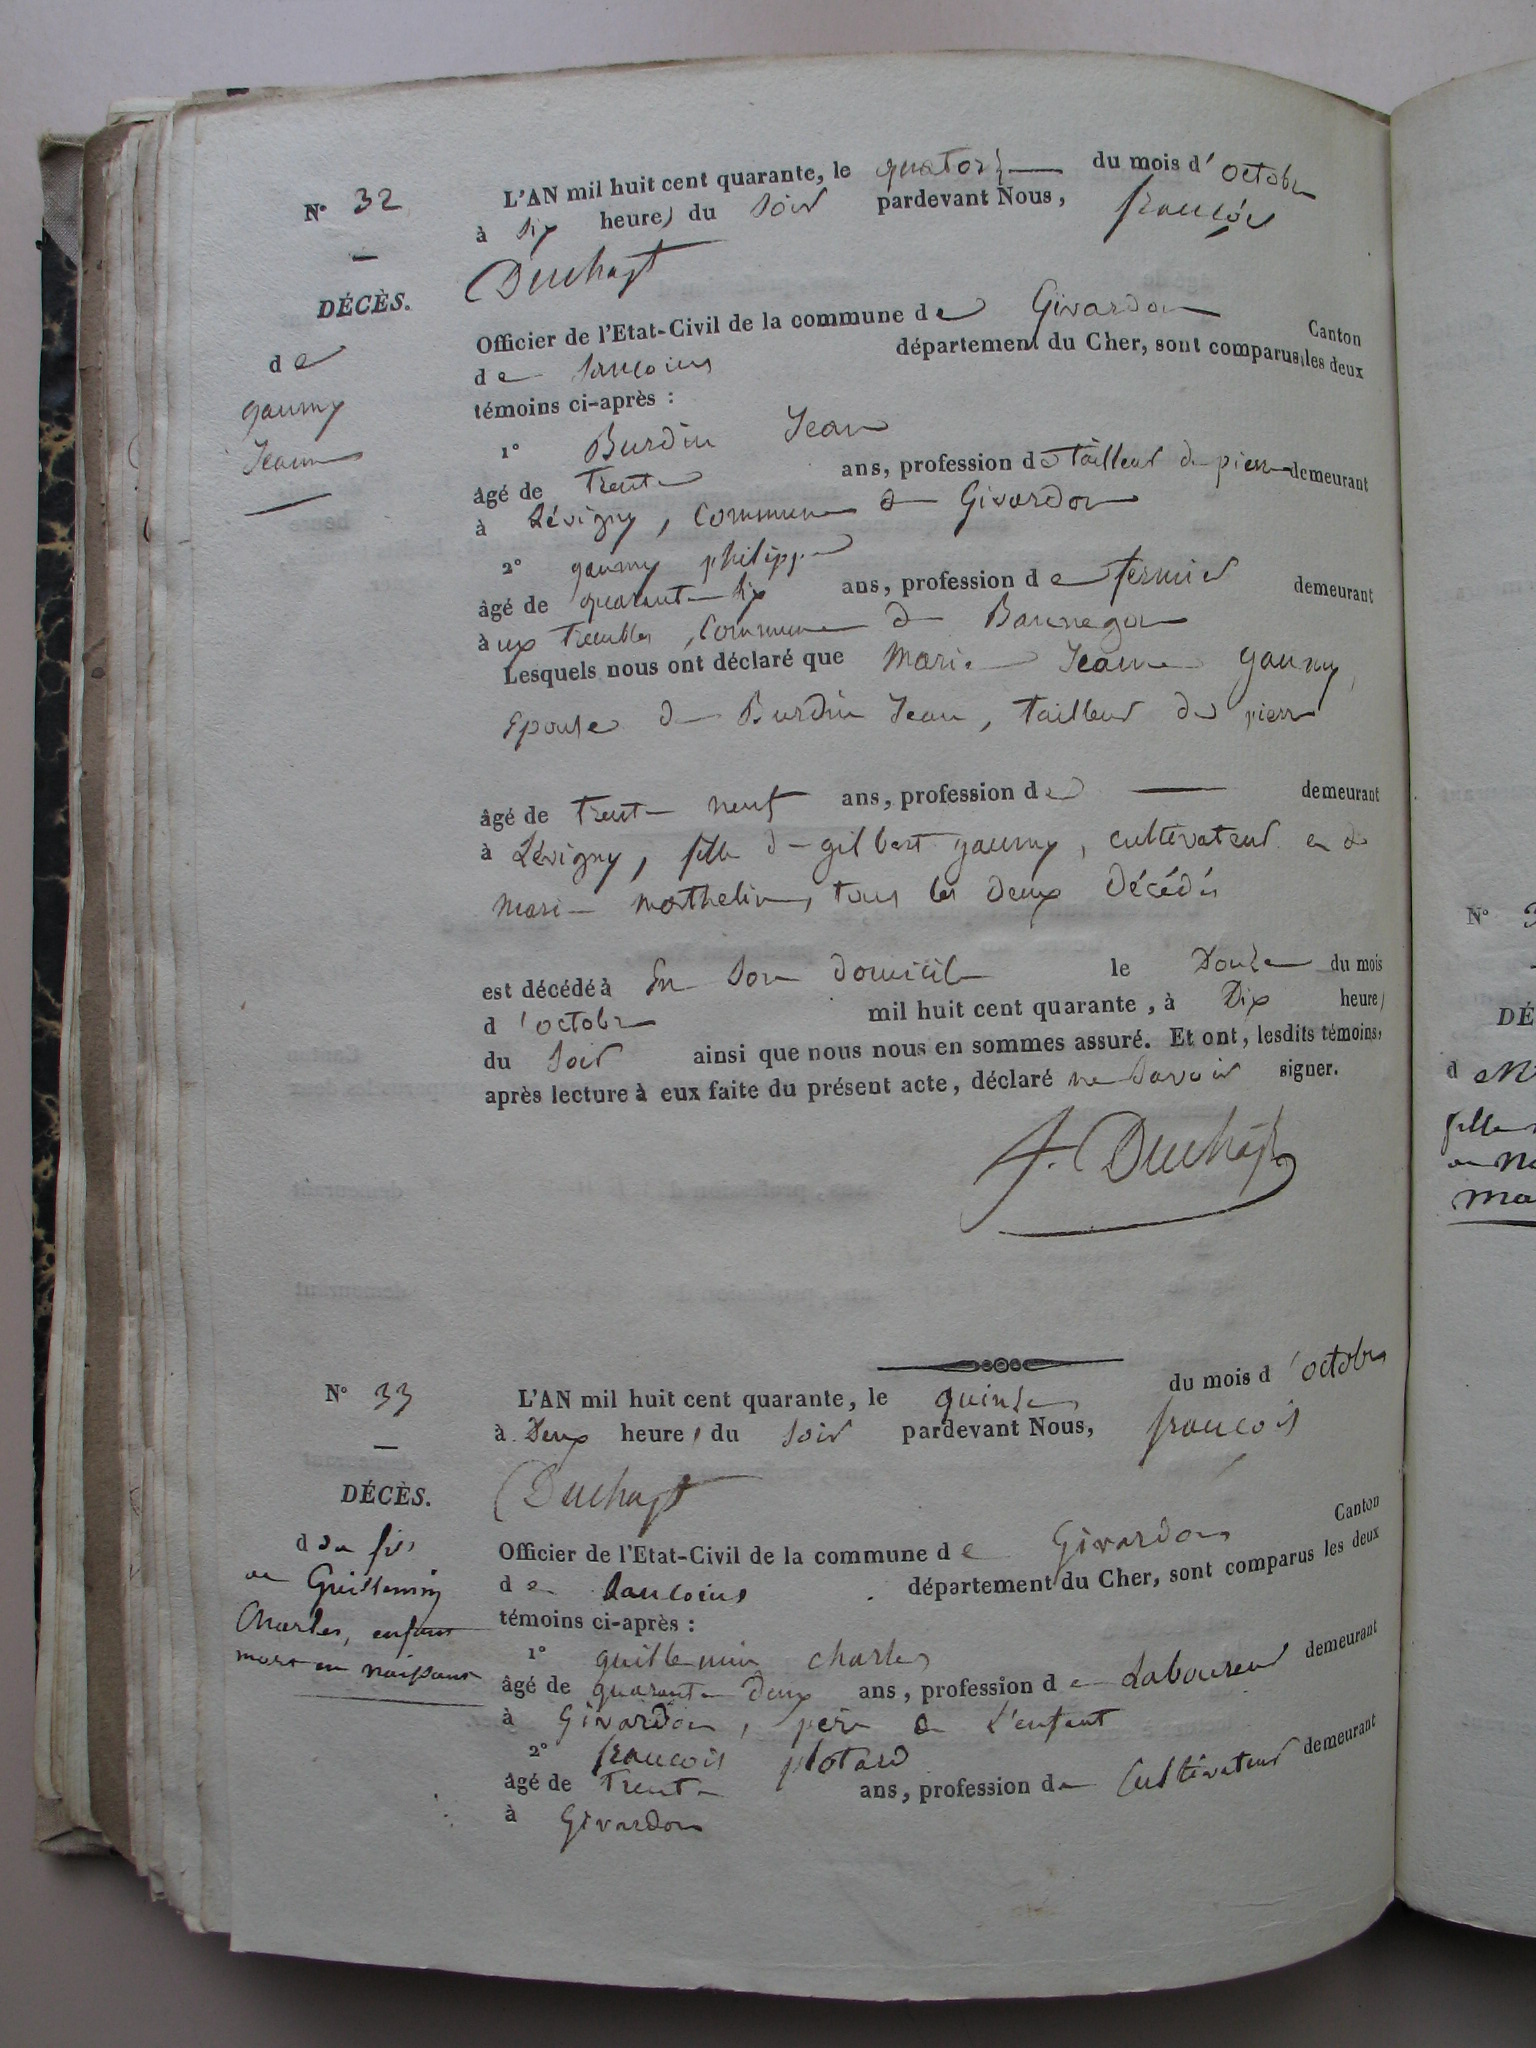 N° 32
DÉCÈS.
de
gaumy
Jeanne
L'AN mil huit cent quarante, le quatorze du mois d'octobre
à six heures du soir pardevant Nous, françois
Duchayt
Officier de l'Etat-Civil de la commune de Givardon Canton
de Sancoins département du Cher, sont comparus les deux
témoins ci-après :
1° Burdin Jean
âgé de trente ans, profession de tailleur de pierre demeurant
à Lévigny, commune de Givardon
2° gaumy philippe
âgé de quarante six ans, profession de fermier demeurant
à ux trembles, commune de Bannegon
Lesquels nous ont déclaré que Marie Jeanne gaumy,
Epouse de Burdin Jean, tailleur de pierre
âgé de trente neuf ans, profession de — demeurant
à Lévigny, fille de gilbert gaumy, cultivateur et de
marie mathelin, tous les deux décédés
est décédé à En son domicile le Douze du mois
d'octobre mil huit cent quarante, à Dix heures
du Soir ainsi que nous nous en sommes assuré. Et ont, lesdits témoins,
après lecture à eux faite du présent acte, déclaré ne savoir signer.
f. Duchayt
N° 33
DÉCÈS.
d du fils
de Guillemin
Charles, enfant
mort en naissant
L'AN mil huit cent quarante, le quinze du mois d'octobre
à Deux heures du soir pardevant Nous, françois
Duchayt
Officier de l'Etat-Civil de la commune de Givardon Canton
de Sancoins département du Cher, sont comparus les deux
témoins ci-après :
1° guillemin charles
âgé de quarante deux ans, profession de Laboureur demeurant
à Givardon, père de L'enfant
2° françois plotard
âgé de trente ans, profession de Cultivateur demeurant
à Givardon
N°
DÉ
d
fille
ma